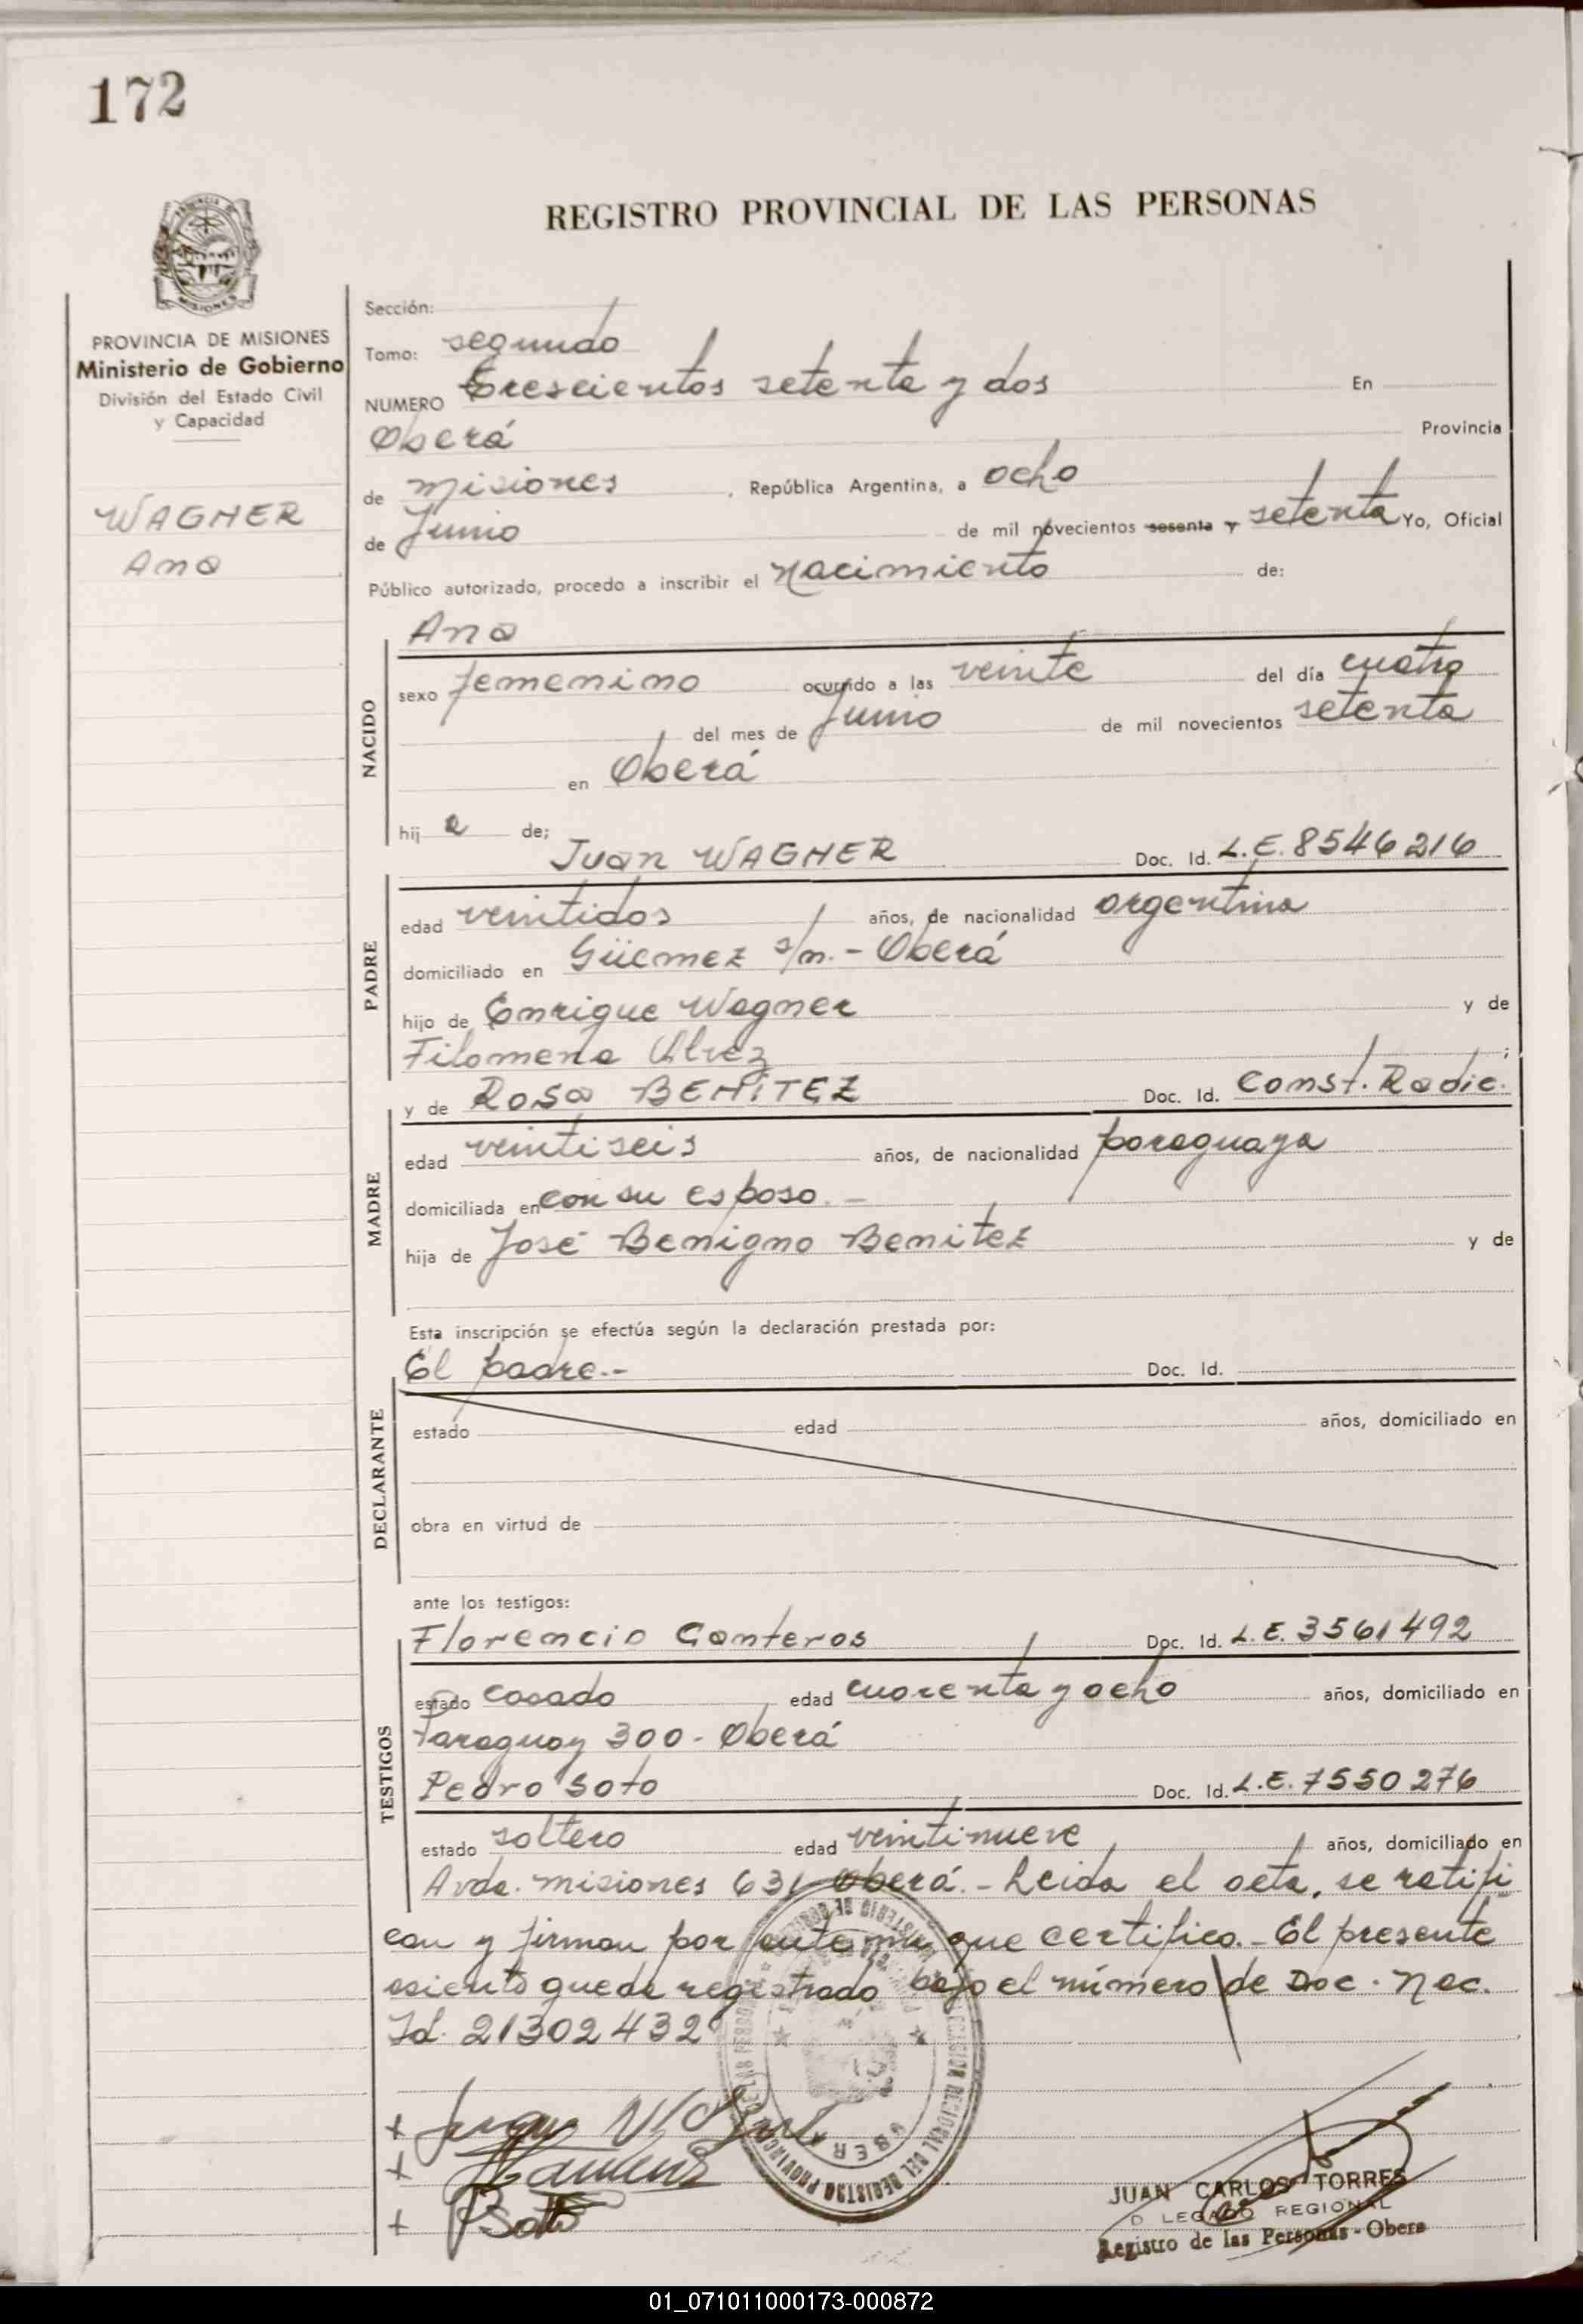 172
REGISTRO PROVINCIAL DE LAS PERSONAS
MISIONES
PROVINCIA DE MISIONES
Ministerio de Gobierno
División del Estado Civil
y Capacidad
WAGNER
Ana
Sección:
Tomo: segundo
NUMERO trescientos setenta y dos En
Oberá Provincia
de Misiones , República Argentina, a ocho
de Junio de mil novecientos sesenta y setenta Yo, Oficial
Público autorizado, procedo a inscribir el nacimiento de:
Ana
NACIDO
sexo femenino ocurrido a las veinte del día cuatro
del mes de Junio de mil novecientos setenta
en Oberá
hij a de;
Juan WAGNER Doc. Id. L.E. 8546216
PADRE
edad veintidos años, de nacionalidad argentina
domiciliado en Güemez s/n.- Oberá
hijo de Enrique Wagner y de
Filomena Alvez ;
y de Rosa BENITEZ Doc. Id. Const. Radic.
MADRE
edad veintiseis años, de nacionalidad paraguaya
domiciliada en con su esposo.-
hija de José Benigno Benitez y de
Esta inscripción se efectúa según la declaración prestada por:
El padre.- Doc. Id.
DECLARANTE
estado edad años, domiciliado en
obra en virtud de
ante los testigos:
Florencio Ganteros Doc. Id. L.E. 3561492
TESTIGOS
estado casado edad cuarenta y ocho años, domiciliado en
Paraguay 300 - Oberá
Pedro Soto Doc. Id. L.E. 7550276
estado soltero edad veintinueve años, domiciliado en
Avda. Misiones 631 Oberá.- Leida el acta, se ratifi
can y firman por ante mi, que certifico.- El presente
asiento queda registrado bajo el número de Doc. Nac.
Id. 21302432
JUAN CARLOS TORRES
DELEGADO REGIONAL
Registro de las Personas - Obera
01_071011000173-000872